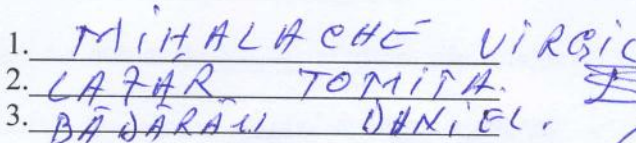 1. MIHALACHE VIRGIL
2. LAZĂR TOMIȚA.
3. BĂDĂRĂU DANIEL.